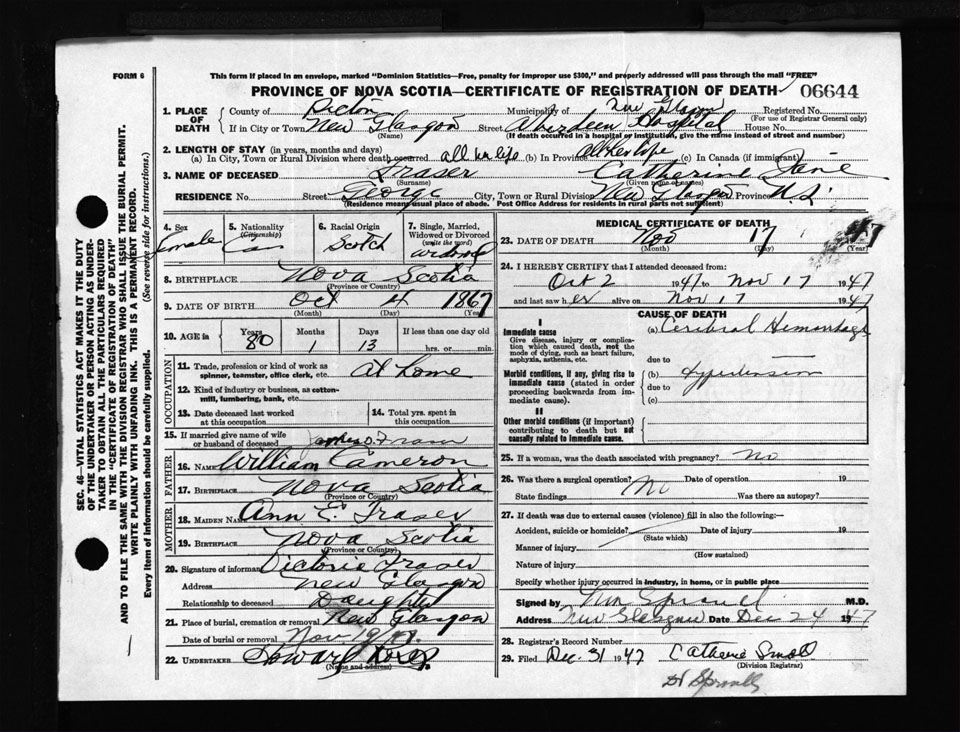 FORM 6
This form if placed in an envelope, marked "Dominion Statistics—Free, penalty for improper use $300," and properly addressed will pass through the mail "FREE"
PROVINCE OF NOVA SCOTIA—CERTIFICATE OF REGISTRATION OF DEATH 06644
1. PLACE OF DEATH
County of Pictou Municipality of New Glasgow Registered No.
(For use of Registrar General only)
If in City or Town New Glasgow Street Aberdeen Hospital House No.
(Name) (If death occurred in a hospital or institution, give the name instead of street and number)
2. LENGTH OF STAY (in years, months and days)
(a) In City, Town or Rural Division where death occurred all her life (b) In Province all her life (c) In Canada (if immigrant)
3. NAME OF DECEASED Fraser Catherine Jane
(Surname) (Given name or names)
RESIDENCE No. Street George City, Town or Rural Division New Glasgow Province N.S.
(Residence means usual place of abode. Post Office Address for residents in rural parts not sufficient)
4. Sex
female
5. Nationality
(Citizenship)
6. Racial Origin
Scotch
7. Single, Married, Widowed or Divorced
(write the word)
widowed
8. BIRTHPLACE Nova Scotia
(Province or Country)
9. DATE OF BIRTH Oct 4 1867
(Month) (Day) (Year)
10. AGE in
Years Months Days If less than one day old
80 1 13 hrs. or min.
OCCUPATION
11. Trade, profession or kind of work as spinner, teamster, office clerk, etc. At home
12. Kind of industry or business, as cotton-mill, lumbering, bank, etc.
13. Date deceased last worked at this occupation
14. Total yrs. spent in this occupation
15. If married give name of wife or husband of deceased Fraser
FATHER
16. NAME William Cameron
17. BIRTHPLACE Nova Scotia
(Province or Country)
MOTHER
18. MAIDEN NAME Ann E. Fraser
19. BIRTHPLACE Nova Scotia
(Province or Country)
20. Signature of informant Victoria Fraser
Address New Glasgow
Relationship to deceased Daughter
21. Place of burial, cremation or removal New Glasgow
Date of burial or removal Nov 19/47
22. UNDERTAKER Howard
(Name and address)
MEDICAL CERTIFICATE OF DEATH
23. DATE OF DEATH Nov 17 47
(Month) (Day) (Year)
24. I HEREBY CERTIFY that I attended deceased from:
Oct 2 1947 to Nov 17 1947
and last saw her alive on Nov 17 1947
CAUSE OF DEATH
I
Immediate cause
Give disease, injury or complication which caused death, not the mode of dying, such as heart failure, asphyxia, asthenia, etc.
(a) Cerebral Hemorrhage
due to
Morbid conditions, if any, giving rise to immediate cause (stated in order proceeding backwards from immediate cause).
(b) Hypertension
due to
(c)
II
Other morbid conditions (if important) contributing to death but not causally related to immediate cause.
25. If a woman, was the death associated with pregnancy? No
26. Was there a surgical operation? No Date of operation 19
State findings Was there an autopsy?
27. If death was due to external causes (violence) fill in also the following:—
Accident, suicide or homicide? Date of injury 19
(State which)
Manner of injury
(How sustained)
Nature of injury
Specify whether injury occurred in industry, in home, or in public place
Signed by M.D.
Address New Glasgow Date Dec 24 1947
28. Registrar's Record Number
29. Filed Dec. 31 1947
(Division Registrar)
SEC. 46—VITAL STATISTICS ACT MAKES IT THE DUTY
OF THE UNDERTAKER OR PERSON ACTING AS UNDER-
TAKER TO OBTAIN ALL THE PARTICULARS REQUIRED
IN THE "CERTIFICATE OF REGISTRATION OF DEATH"
AND TO FILE THE SAME WITH THE DIVISION REGISTRAR WHO SHALL ISSUE THE BURIAL PERMIT.
WRITE PLAINLY WITH UNFADING INK. THIS IS A PERMANENT RECORD.
Every item of information should be carefully supplied. (See reverse side for instructions.)